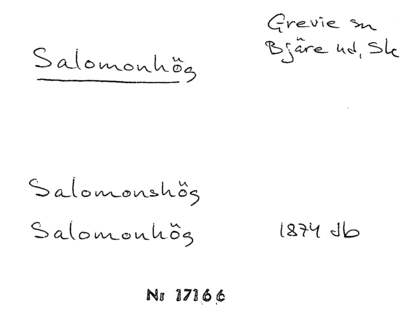 Grevie sn
Bjäre hd, Sk
Salomonhög
Salomonshög
Salomonhög 1874 db
Nr 17166